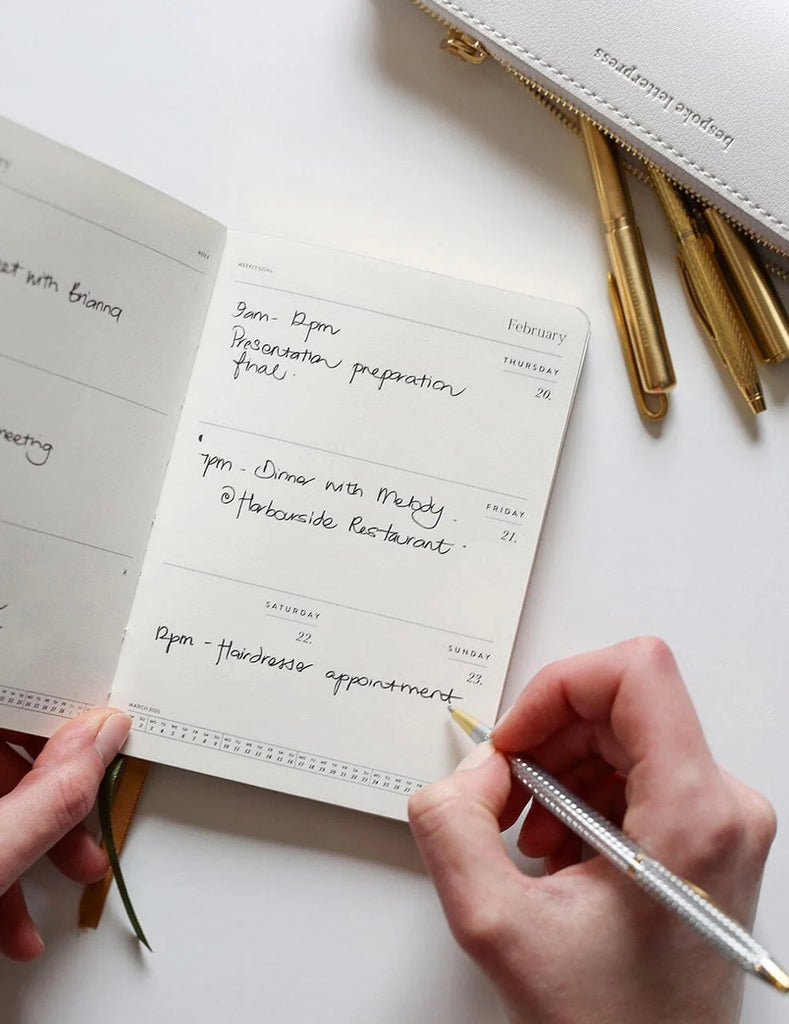 meet with Brianna
meeting
WEEKLY GOAL:
February
9am - 12pm
Presentation preparation
final.
THURSDAY
20.
7pm - Dinner with Melody.
@Harbourside Restaurant.
FRIDAY
21.
SATURDAY
22.
12pm - Hairdresser appointment
SUNDAY
23.
MARCH 2025
bespoke letterpress